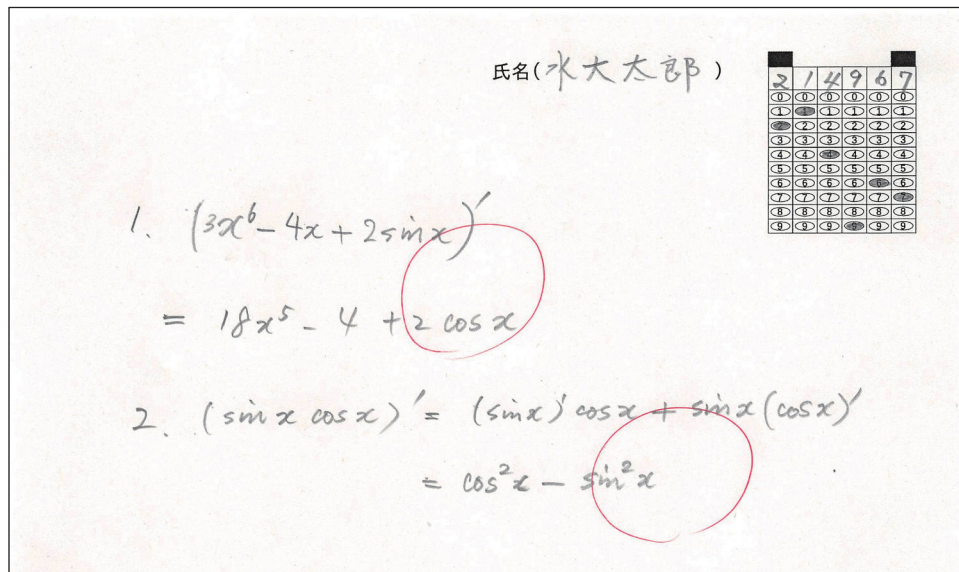 氏名(水大太郎)
2 1 4 9 6 7
0 0 0 0 0 0
1 1 1 1 1 1
2 2 2 2 2 2
3 3 3 3 3 3
4 4 4 4 4 4
5 5 5 5 5 5
6 6 6 6 6 6
7 7 7 7 7 7
8 8 8 8 8 8
9 9 9 9 9 9
1. (3x⁶ - 4x + 2sinx)′
= 18x⁵ - 4 + 2 cos x
2. (sin x cos x)′ = (sinx)′ cosx + sinx (cosx)′
= cos²x - sin²x